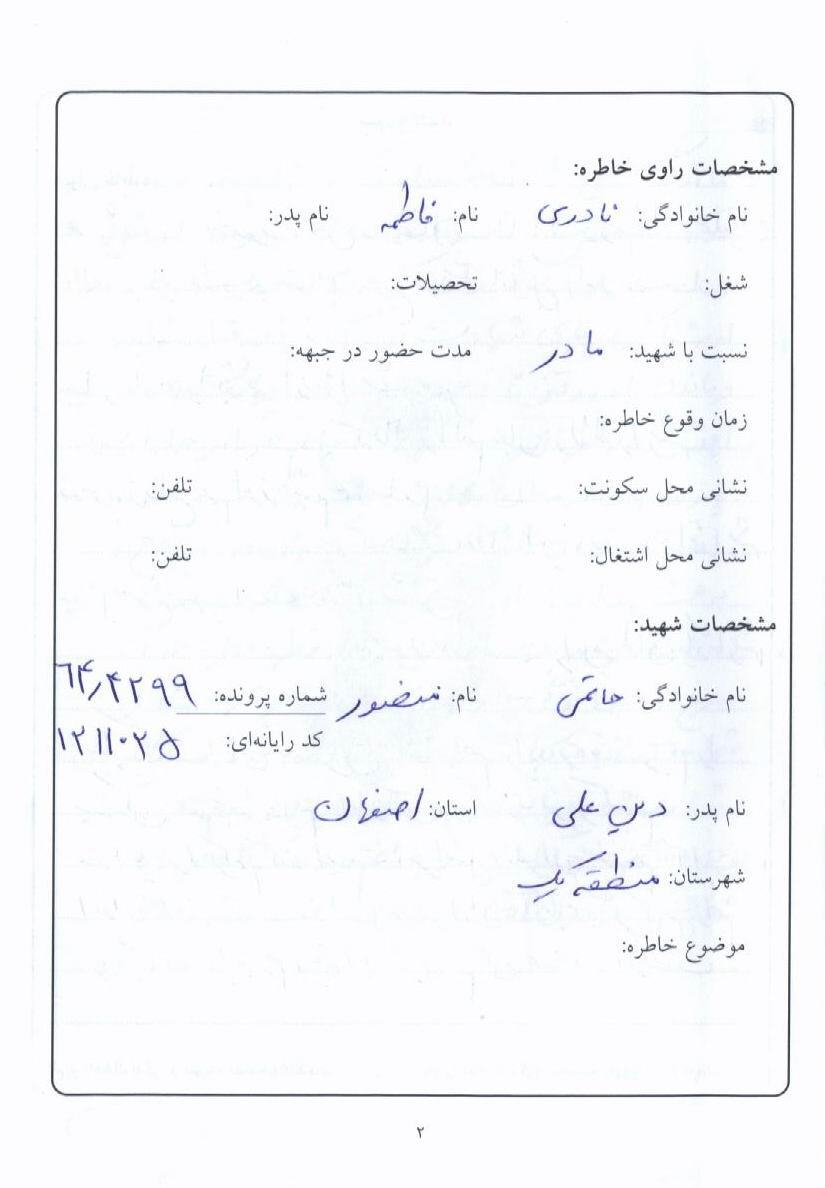 مشخصات راوی خاطره:
نام خانوادگی: نادری نام: فاطمه نام پدر:
شغل: تحصیلات:
نسبت با شهید: مادر مدت حضور در جبهه:
زمان وقوع خاطره:
نشانی محل سکونت: تلفن:
نشانی محل اشتغال: تلفن:
مشخصات شهید:
نام خانوادگی: حاتمی نام: منصور شماره پرونده: ۶۴٫۴۲۹۹
کد رایانه‌ای: ۱۲۱۱۰۲۵
نام پدر: دین علی استان: اصفهان
شهرستان: منطقه یک
موضوع خاطره:
۲